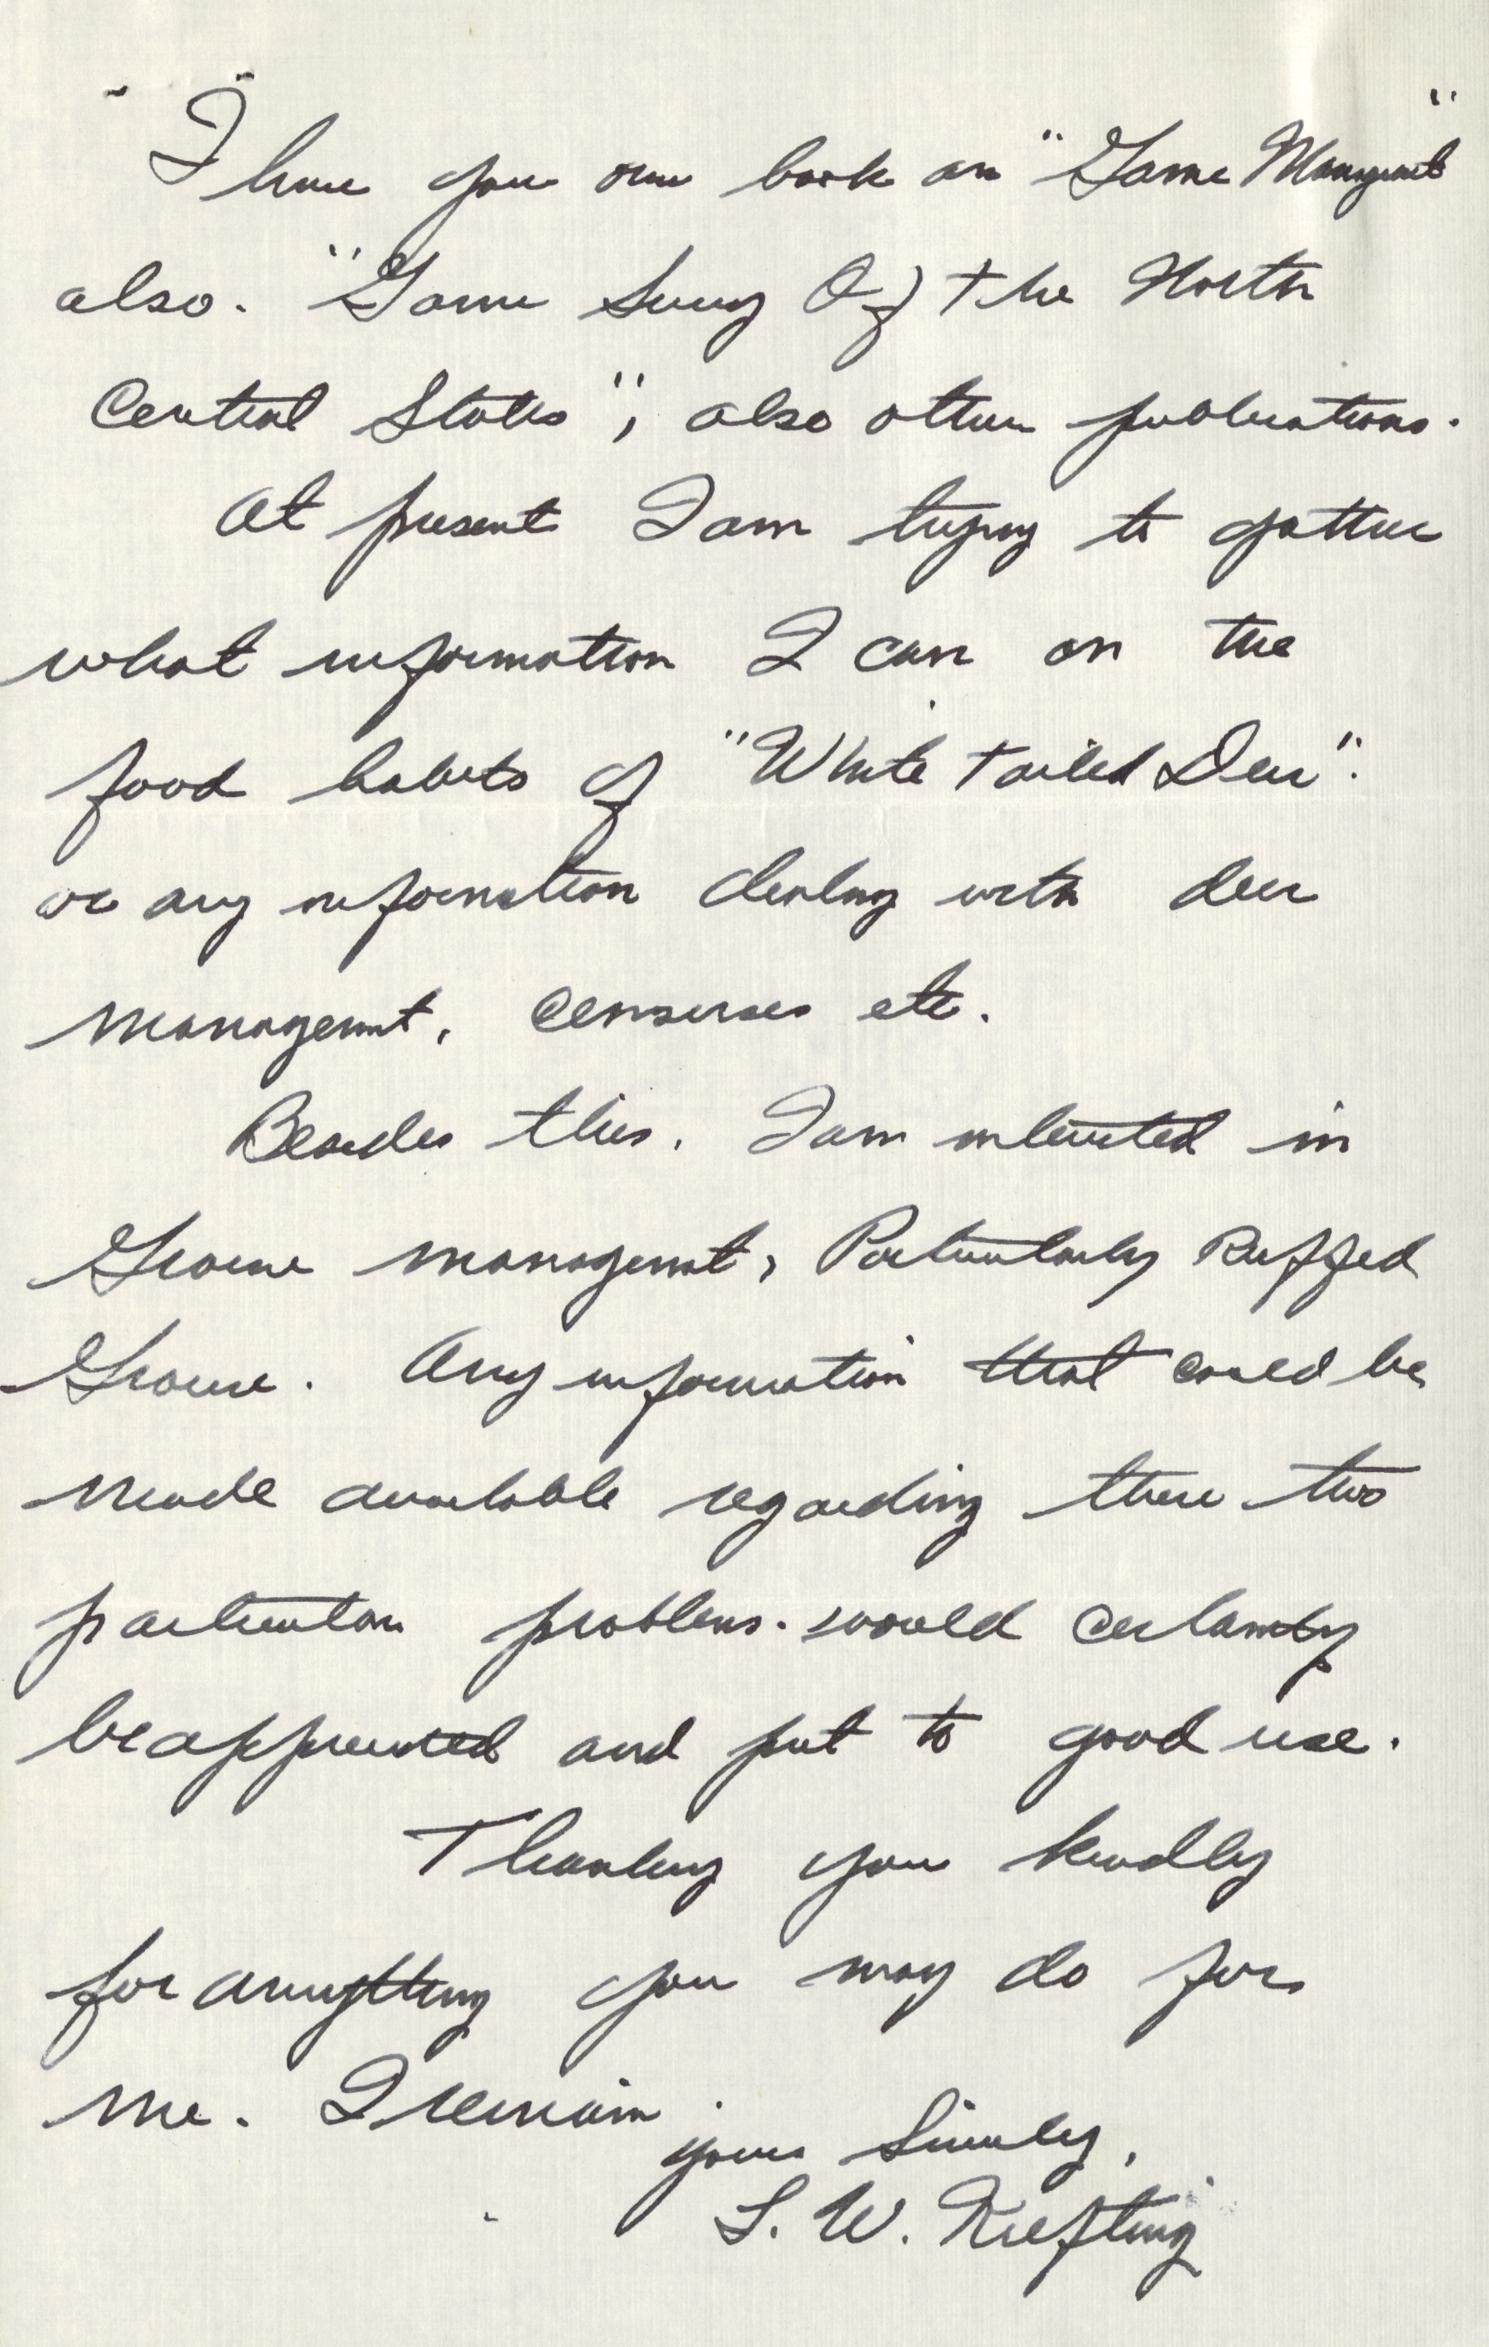 I have you own book on "Game Managment"
also. "Game Survey Of The North
Central States", also other publications.
At present I am trying to gather
what information I can on the
food habits of "White Tailed Deer".
or any information dealing with deer
management, censuses etc.
Besides this. I am interested in
Grouse management, Particularly Ruffed
Grouse. Any information that could be
made available regarding these two
particular problems. would certainly
be appreciated and put to good use.
Thanking you kindly
for anything you may do for
me. I remain
yours Sincerely,
L. W. Krefting